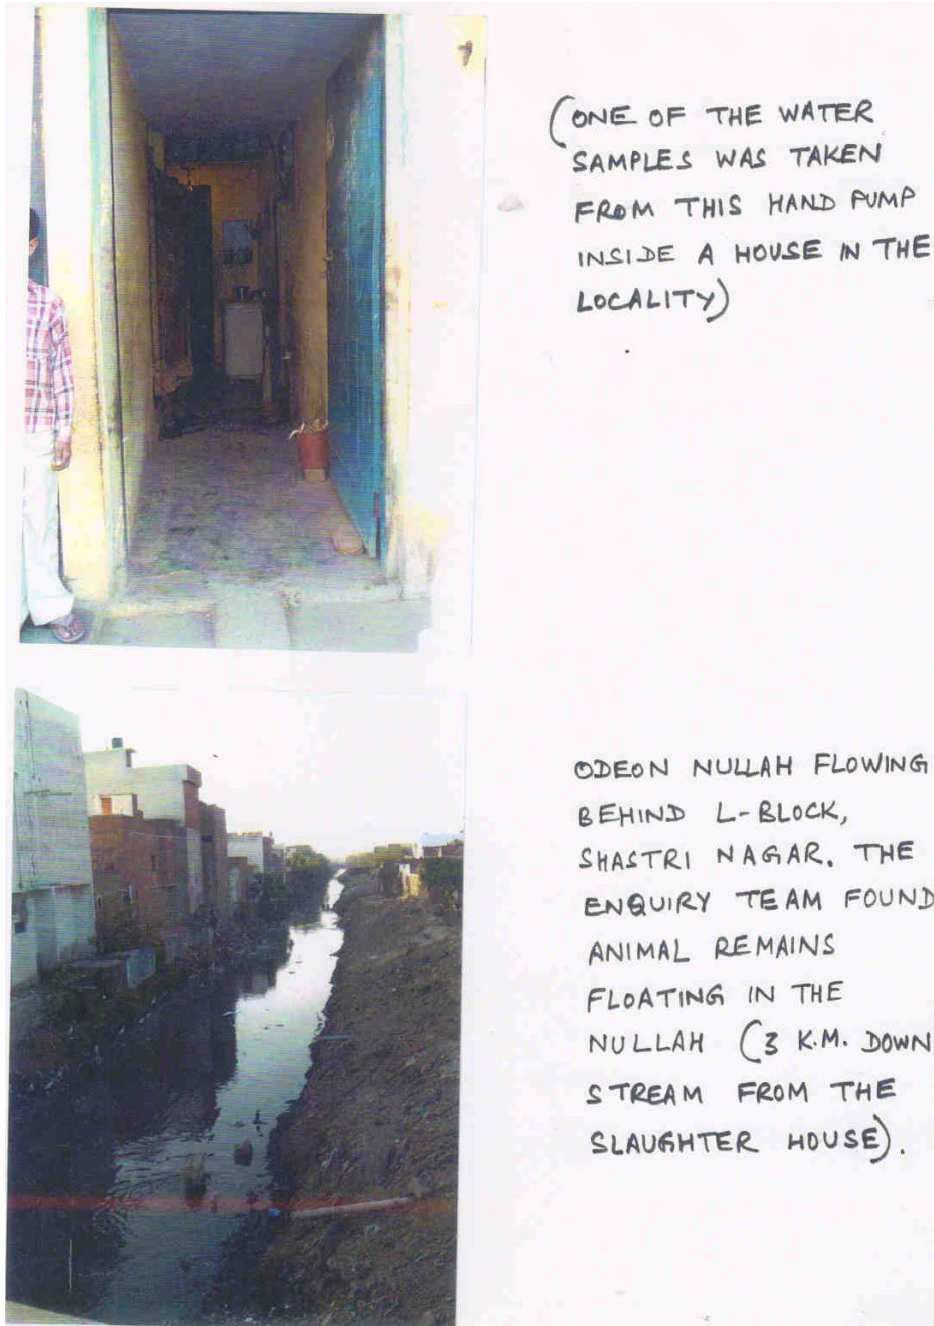 (ONE OF THE WATER
SAMPLES WAS TAKEN
FROM THIS HAND PUMP
INSIDE A HOUSE IN THE
LOCALITY)
ODEON NULLAH FLOWING
BEHIND L-BLOCK,
SHASTRI NAGAR. THE
ENQUIRY TEAM FOUND
ANIMAL REMAINS
FLOATING IN THE
NULLAH (3 K.M. DOWN
STREAM FROM THE
SLAUGHTER HOUSE).